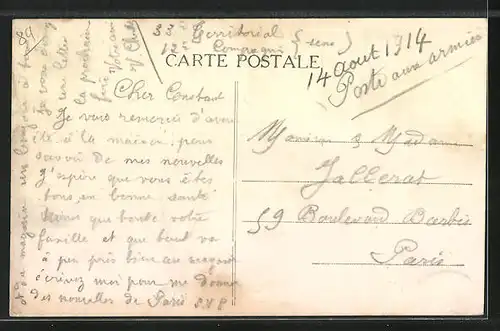 33e Territorial (sens)
12e Compagnie
CARTE POSTALE
14 aout 1914
Poste aux armées
Cher Constant
Je vous remercie d'avoir
été à la maison pour
savoir de mes nouvelles
J'espère que vous êtes
tous en bonne santé
que toute votre
famille et que tout va
à peu près bien au
écrivez moi pour me donner
des nouvelles de Paris
Monsieur & Madame
Jallerat
59 Boulevard Barbès
Paris
magasin un bonjour à
Je vous
une lettre
la prochaine
fois Votre ami